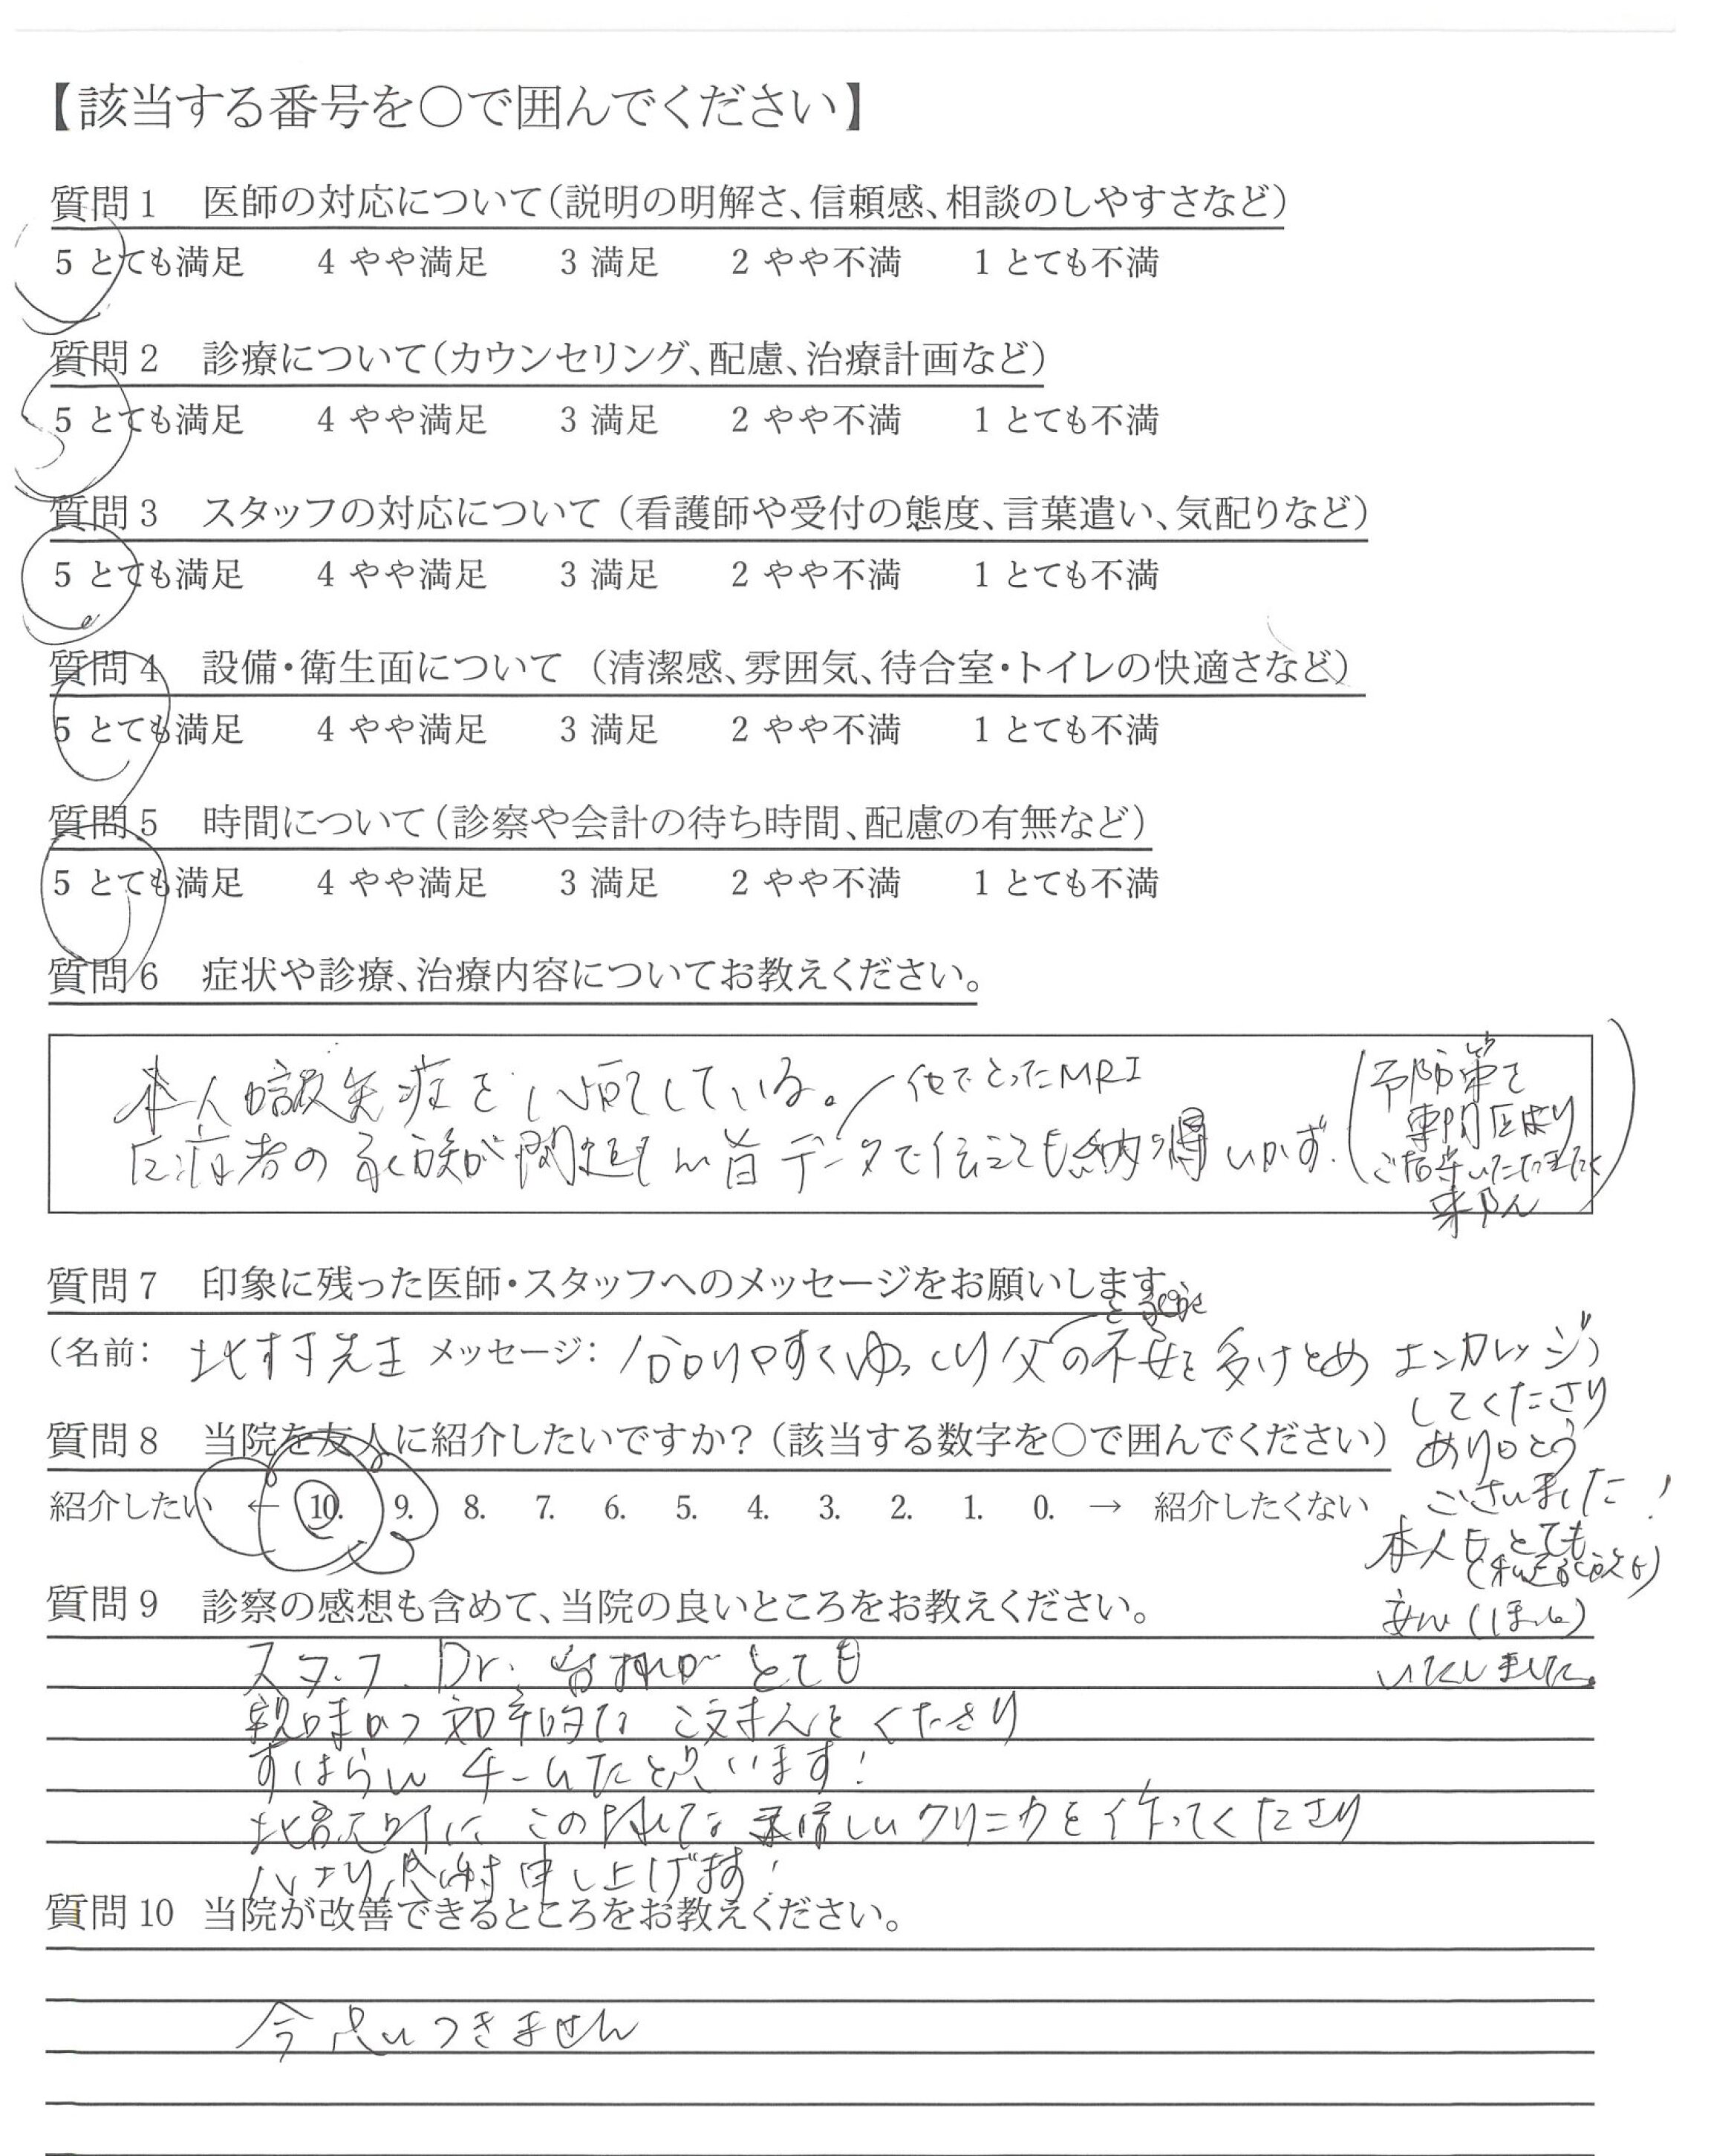 【該当する番号を○で囲んでください】
質問1 医師の対応について(説明の明解さ、信頼感、相談のしやすさなど)
5 とても満足 4 やや満足 3 満足 2 やや不満 1 とても不満
質問2 診療について(カウンセリング、配慮、治療計画など)
5 とても満足 4 やや満足 3 満足 2 やや不満 1 とても不満
質問3 スタッフの対応について(看護師や受付の態度、言葉遣い、気配りなど)
5 とても満足 4 やや満足 3 満足 2 やや不満 1 とても不満
質問4 設備・衛生面について(清潔感、雰囲気、待合室・トイレの快適さなど)
5 とても満足 4 やや満足 3 満足 2 やや不満 1 とても不満
質問5 時間について(診察や会計の待ち時間、配慮の有無など)
5 とても満足 4 やや満足 3 満足 2 やや不満 1 とても不満
質問6 症状や診療、治療内容についてお教えください。
本人が認知症を心配している。
他でとったMRI
医療者の家族が問題ない旨データで伝えても納得いかず.
(予防策を
専門医より
ご指導いただきたく
来院)
質問7 印象に残った医師・スタッフへのメッセージをお願いします。
と家族
(名前: 北村先生 メッセージ: 分かりやすくゆっくり父の不安を受けとめ エンカレッジ)
してくださり
ありがとう
ございました!
本人もとても
安心(ほっと)
いたしました。
質問8 当院を友人に紹介したいですか?(該当する数字を○で囲んでください)
紹介したい ← 10. 9. 8. 7. 6. 5. 4. 3. 2. 1. 0. → 紹介したくない
質問9 診察の感想も含めて、当院の良いところをお教えください。
スタッフ、Dr. 皆様がとても
親味かつ効率的な ご対応をくださり
すばらしい チームだと思います!
この様な素晴しいクリニックを作ってくださり
心より感謝申し上げます!
質問10 当院が改善できるところをお教えください。
今思いつきません